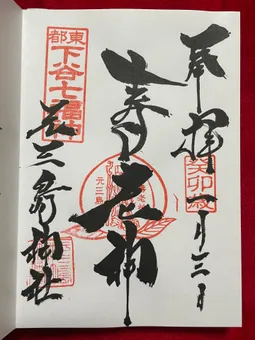 奉拝
癸卯歳
一月三日
寿老神
元三島
東都
下谷七福神
元三島神社